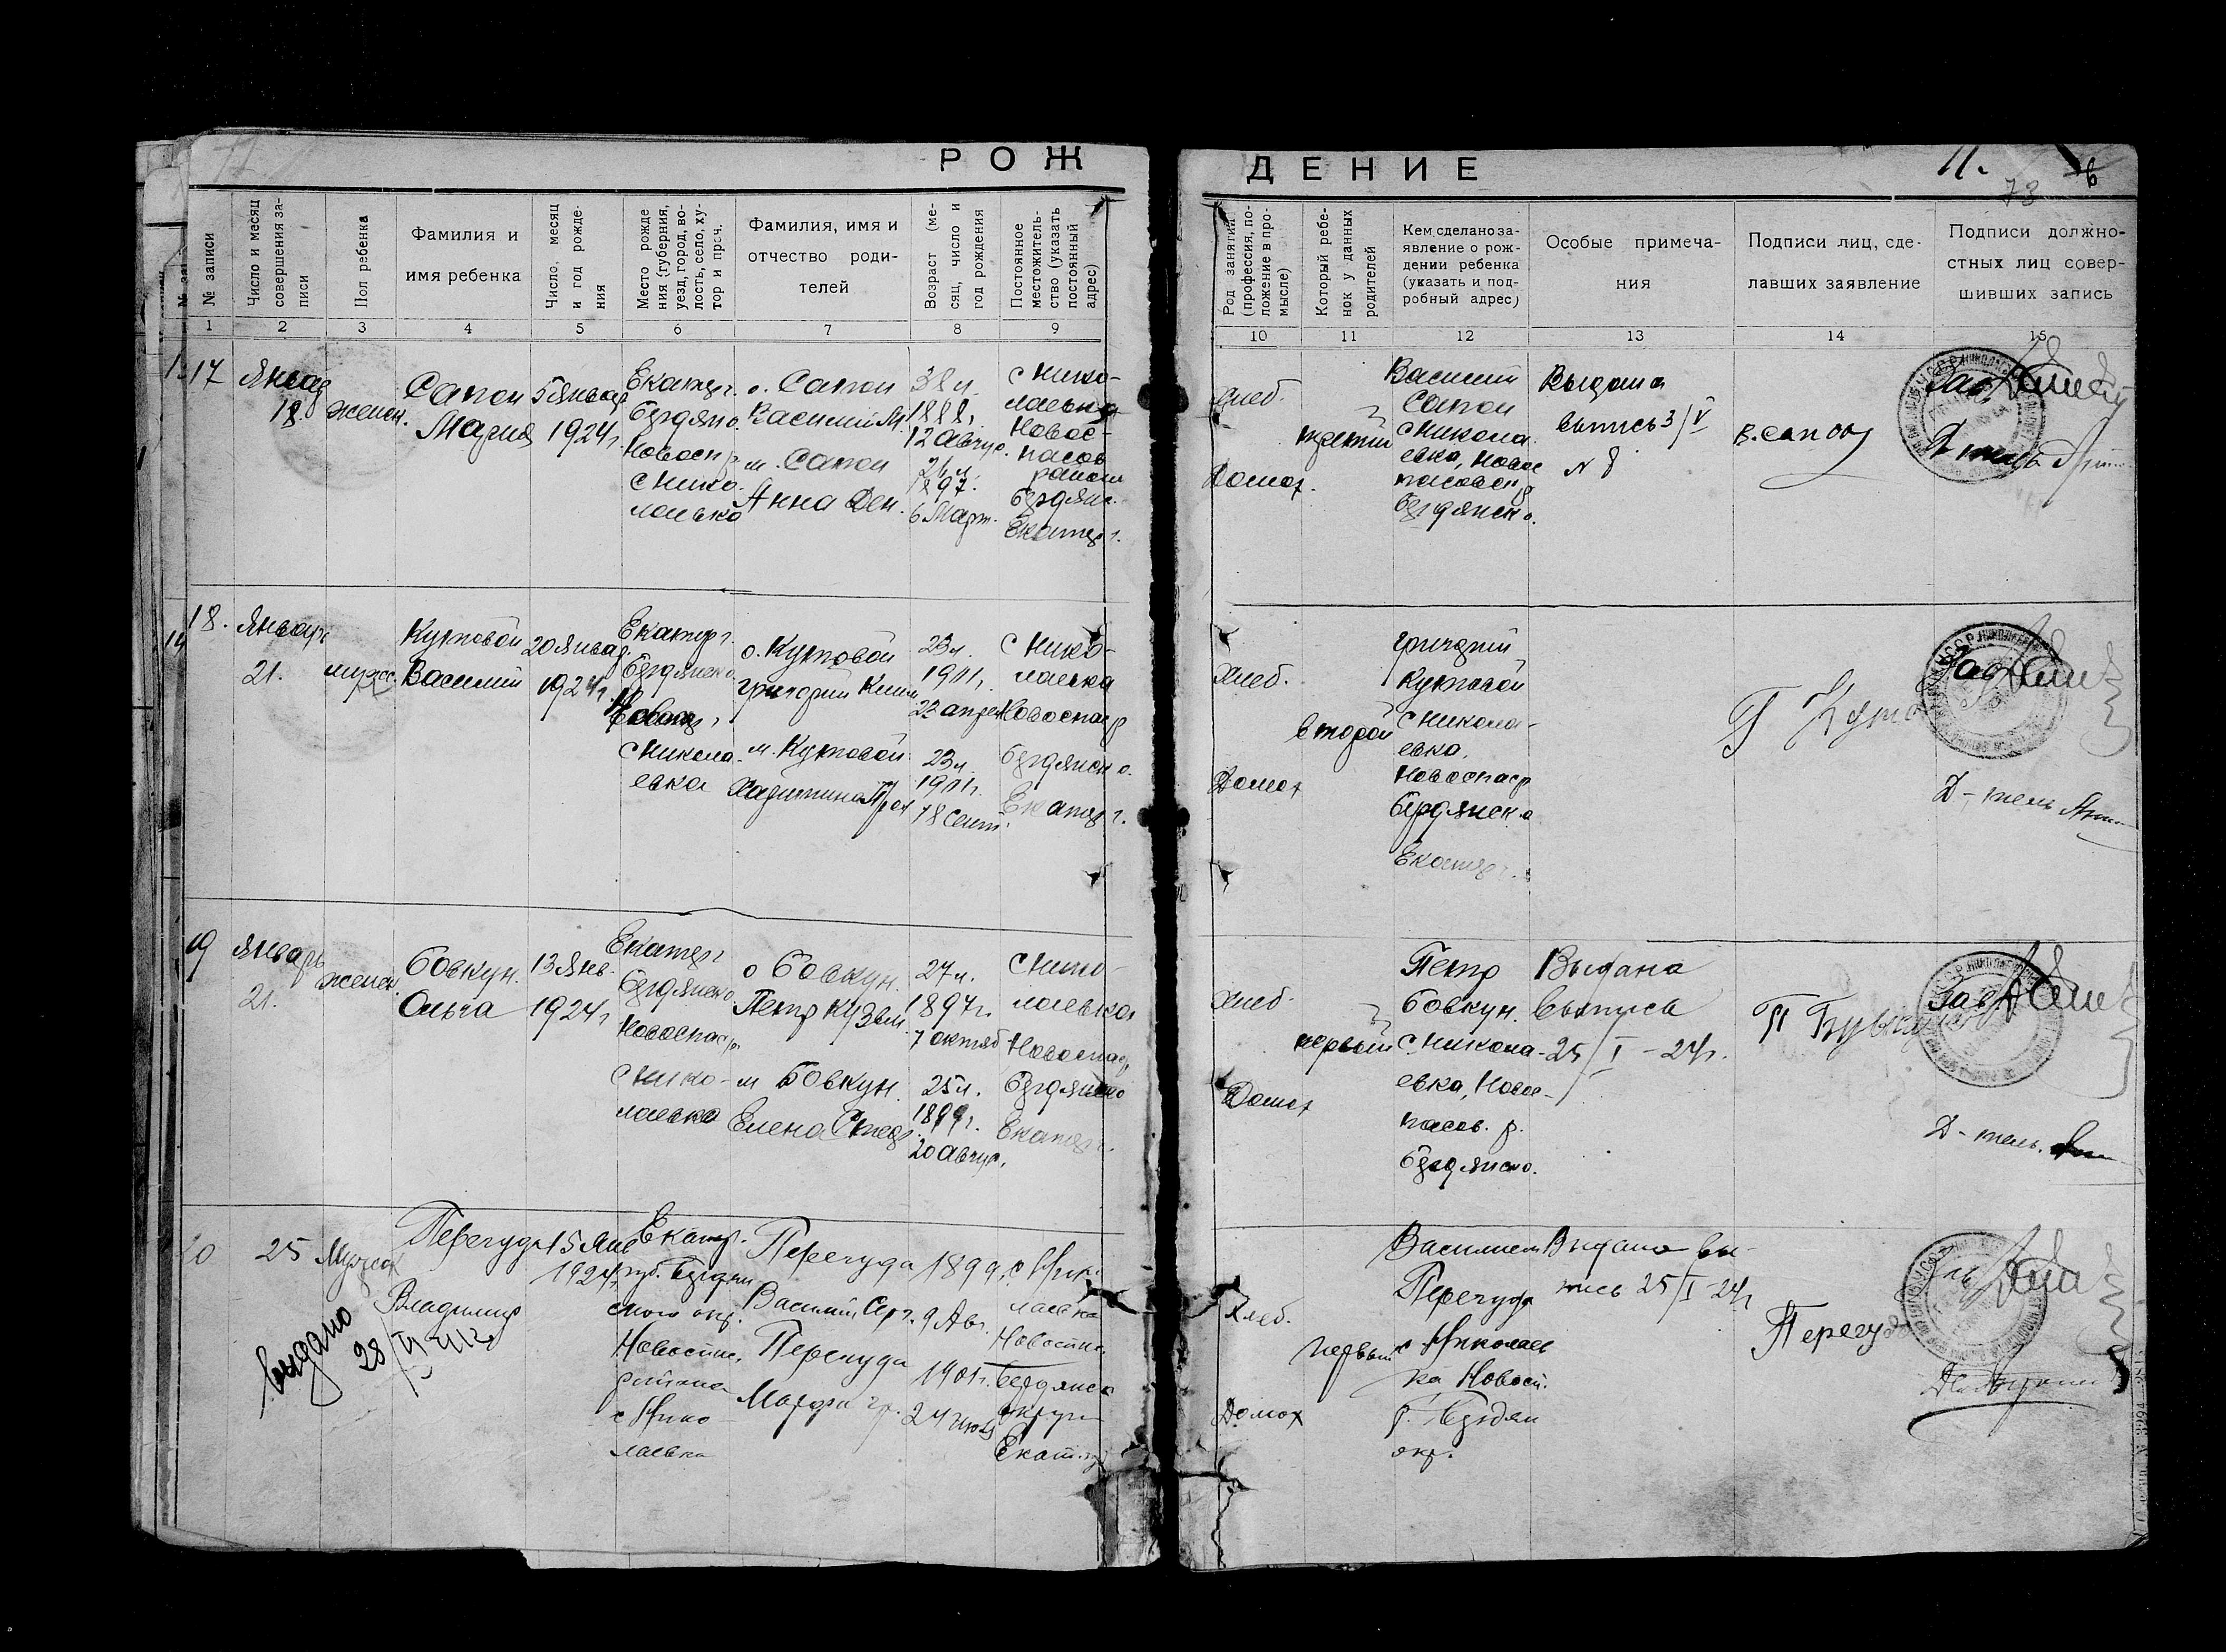 РОЖДЕНИЕ
11.
73
№ записи
Число и месяц совершения записи
Пол ребенка
Фамилия и
имя ребенка
Число, месяц
и год рожде-
ния
Место рожде
ния (губерния,
уезд, город, во-
лость, село, ху-
тор и проч.
Фамилия, имя и
отчество роди-
телей
Возраст (ме-
сяц, число и
год рождения
Постоянное
местожитель-
ство (указать
постоянный
адрес)
Род занятий
(профессия, по-
ложение в про-
мысле)
Который ребе-
нок у данных
родителей
Кем сделано за-
явление о рож-
дении ребенка
(указать и под-
робный адрес)
Особые примеча-
ния
Подписи лиц, сде-
лавших заявление
Подписи должно-
стных лиц совер-
шивших запись
1 2 3 4 5 6 7 8 9 10 11 12 13 14 15
17
18.
женск.
Сапон
Мария
5 Январ
1924 г.
Екатер г.
Бердян о.
Новосп р.
с Нико-
лаевка
о. Сапон
Василий
м. Сапон
Анна Дем.
1888.
12 Август.
1897.
6 Март.
с Нико-
лаевка
Новос-
пасов
район
Бердянс.
Екатер г.
Хлеб.
Домох.
третий
Василий
Сапон
с Никола-
евка, Новос
пасовск р
Бердянск о.
Выдана
выпись 3/V
N 8
В. Сапон
18.
Январь
21.
мужс.
Куртовой
Василий
20 Январ.
1924 г
Екатер г.
Бердянск о
с Никола-
евка
о. Куртовой
Григорий Клим
м. Куртовой
Харитина
23 л.
1901 г.
23 апрел
23 л.
1901 г.
18 Сент.
с Нико-
лаевка
Новоспас р
Бердянск о.
Екатер г.
Хлеб.
Домох
второй
Григорий
Куртовой
с Никола-
евка.
Новоспас р
Бердянск о
Екатер г.
Д-тель
19
Январь
21.
женск.
Бовкун.
Ольга
13 Янв.
1924 г
Екатер г
Бердянск о.
Новоспас р.
с Нико-
лаевка
о Бовкун.
Петр Кузьм.
м Бовкун.
Елена
27 л.
1897 г.
7 октяб
25 л.
1899 г.
20 Август.
с Нико-
лаевка
Новоспас р
Бердянск о
Екатер г.
Хлеб.
Домох
первый
Петр
Бовкун.
с. Никола-
евка, Новос-
пасов. р.
Бердянск о.
Выдана
выпись
25/I-24 г.
Д-тель.
20
25
Мужск
Перегуда
Владимир
15 Янв
1924 г.
Екатер.
губ. Бердян
ского окр.
Новоспас.
района
с Нико-
лаевка
Перегуда
Василий Серг.
Перегуда
Марфа Гр.
1899
9 Авг.
1901 г.
с Нико-
лаевка
Новоспас.
Бердянск
округ
Екат. г
выдано
28
Хлеб.
Домох
первый
Василием
Перегуда
с Николаев
ка Новосп.
р. Бердян
окр.
Выдана вы-
пись 25/I-24 г
Перегуда